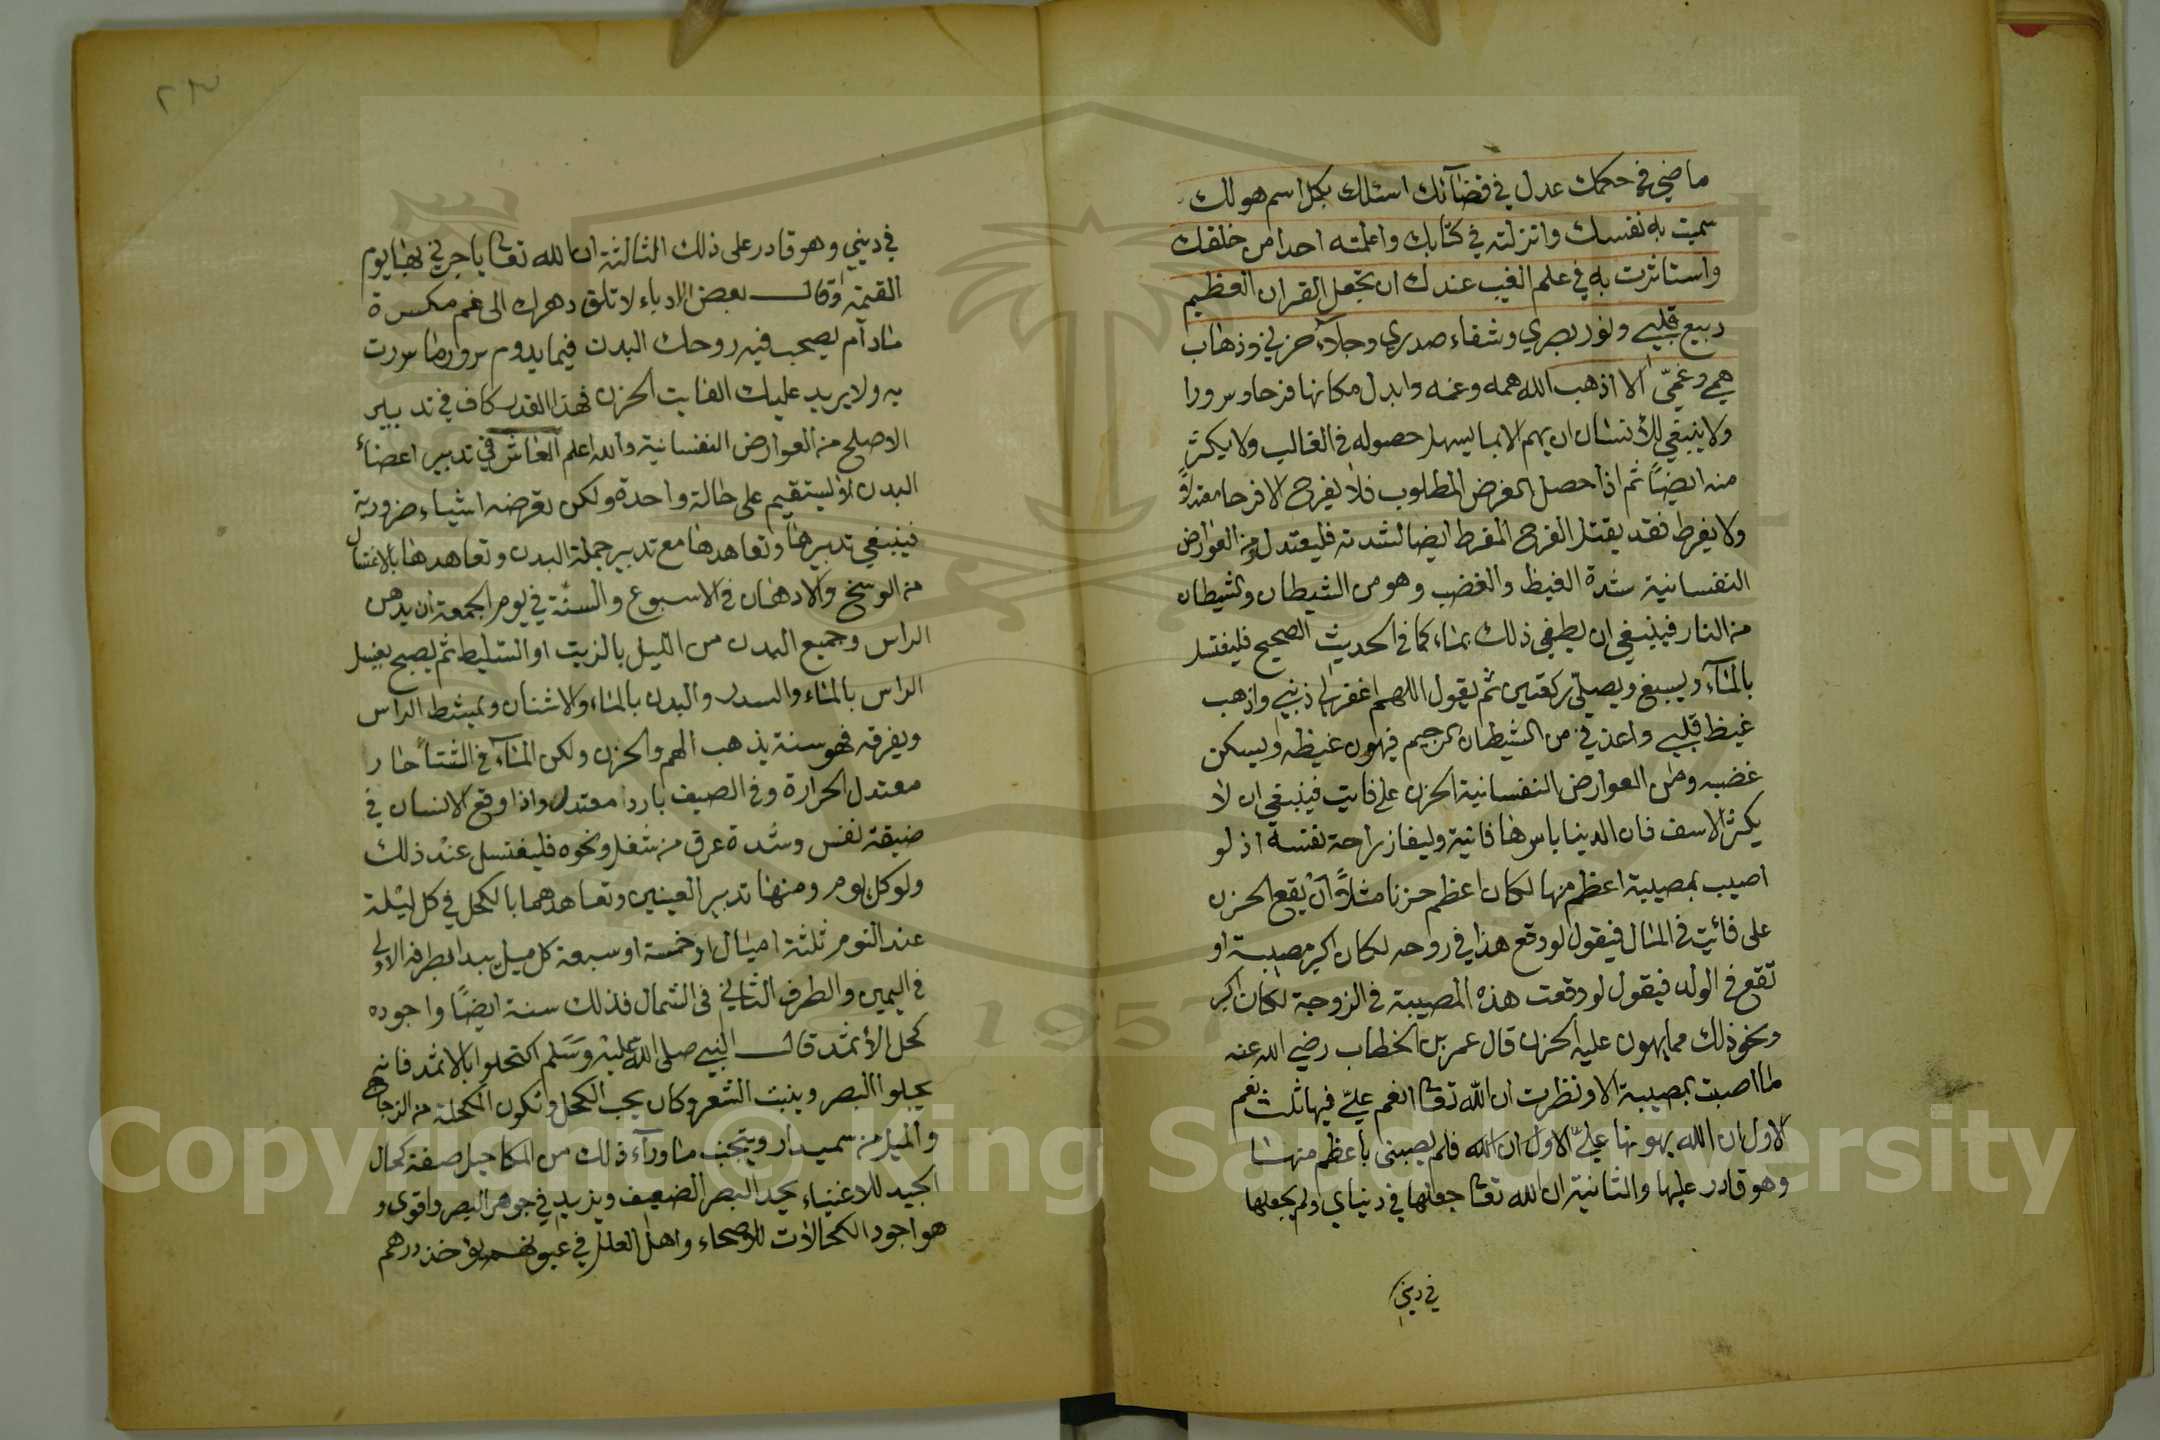 ماضي في حكمك عدل في قضآئك اسئلك بكل اسم هو لك
سميت به نفسك وانزلته في كتابك واعلمته احدا من خلقك
واستاثرت به في علم الغيب عندك ان تجعل القران العظيم
ربيع قلبي ونور بصري وشفاء صدري وجلآء حزني وذهاب
همي وغمّي الا اذهب الله همه وغمه وابدل مكانها فرحا وسرورا
ولا ينبغي للأنسان ان يهم الا بما يسهل حصوله في الغالب ولا يكثر
منه ايضًا ثم اذا حصل الغرض المطلوب فلا يفرح الا فرحا معتدلاً
ولا يفرط فقد يقتل الفرح المفرط ايضا لشدته فليعتدل ومن العوارض
النفسانية شدة الغيظ والغضب وهو من الشيطان والشيطان
من النار فينبغي ان يطفي ذلك بماء كما في الحديث الصحيح فليغتسل
بالمآء ويسبغ ويصلّي ركعتين ثم يقول اللهم اغفر لي ذنبي واذهب
غيظ قلبي واعذني من الشيطان الرجيم فيهون غيظه ويسكن
غضبه ومن العوارض النفسانية الحزن على فايت فينبغي ان لا
يكثر الاسف فان الدنيا باسرها فانية وليفاز براحة نفسه اذ لو
اصيب بمصيبة اعظم منها لكان اعظم حزنا مثلاً أن يقع الحزن
على فائيت في المال فيقول لو وقع هذا في روحه لكان اكبر مصيبة او
تقع في الولد فيقول لو وقعت هذه المصيبة في الزوجة لكان اكبر
ونحو ذلك مما يهون عليه الحزن قال عمر بن الخطاب رضي الله عنه
ما اصبت بمصيبة الا ونظرت ان الله تعا انعم عليّ فيها ثلث نعم
الاول ان الله يهونها عليّ الاول ان الله فلم يصبني باعظم منها
وهو قادر عليها والثانية ان الله تعا جعلها في دنياي ولم يجعلها
في ديني
٢٣
في ديني وهو قادر على ذلك الثالثة ان الله تعا ياجرني بها يوم
القيمة وقال بعض الادباء لا تلق دهرك الى غم مكسرة
مادآم يصحب فيه روحك البدن فيما يدوم سرور ما سررت
به ولا يريد عليك الفايت الحزن فهذا القدر كاف في تدبير
الاصلح من العوارض النفسانية والله اعلم العاشر في تدبير اعضآء
البدن اذ ليستقيم على حالة واحدة ولكن تعرضه اشياء ضرورية
فينبغي تدبيرها وتعاهدها مع تدبير جملة البدن وتعاهدها بالاغتسال
من الوسخ والادهان في الاسبوع والسنّة في يوم الجمعة ان يدهن
الراس وجميع البدن من الليل بالزيت او السليط ثم يصبح يغسل
الراس بالماء والسدر والبدن بالماء والاشنان ويمشط الراس
ويفرقه فهو سنة يذهب الهم والحزن ولكن المآء في الشتاً حار
معتدل الحرارة وفي الصيف باردا معتدل واذا وقع الانسان في
ضيقة نفس وشدة عرق من شغل ونحوه فليغتسل عند ذلك
ولو كل يوم ومنها تدبير العينين وتعاهدهما بالكحل في كل ليلة
عند النوم ثلثة اميال او خمسة او سبعة كل ميل يبدا بطرفه الاولى
في اليمين والطرف الثاني في الشمال فذلك سنة ايضًا واجوده
كحل الأثمد قال النبي صلى الله عليه وسلم اكتحلوا بالاثمد فانه
يجلوا البصر وينبت الشعر وكان يحب الكحل وتكون المكحلة من الزجاج
والميل من سميدار ويتجنب ما ورآء ذلك من المكاحيل صفة كحال
الجيد للاغنياء يحد البصر الضعيف ويزيد في جوهر البصر واقوى و
هو اجود الكحالات للاصحاء واهل العلل في عيونهم يؤخذ درهم
1957
Copyright © King Saud University